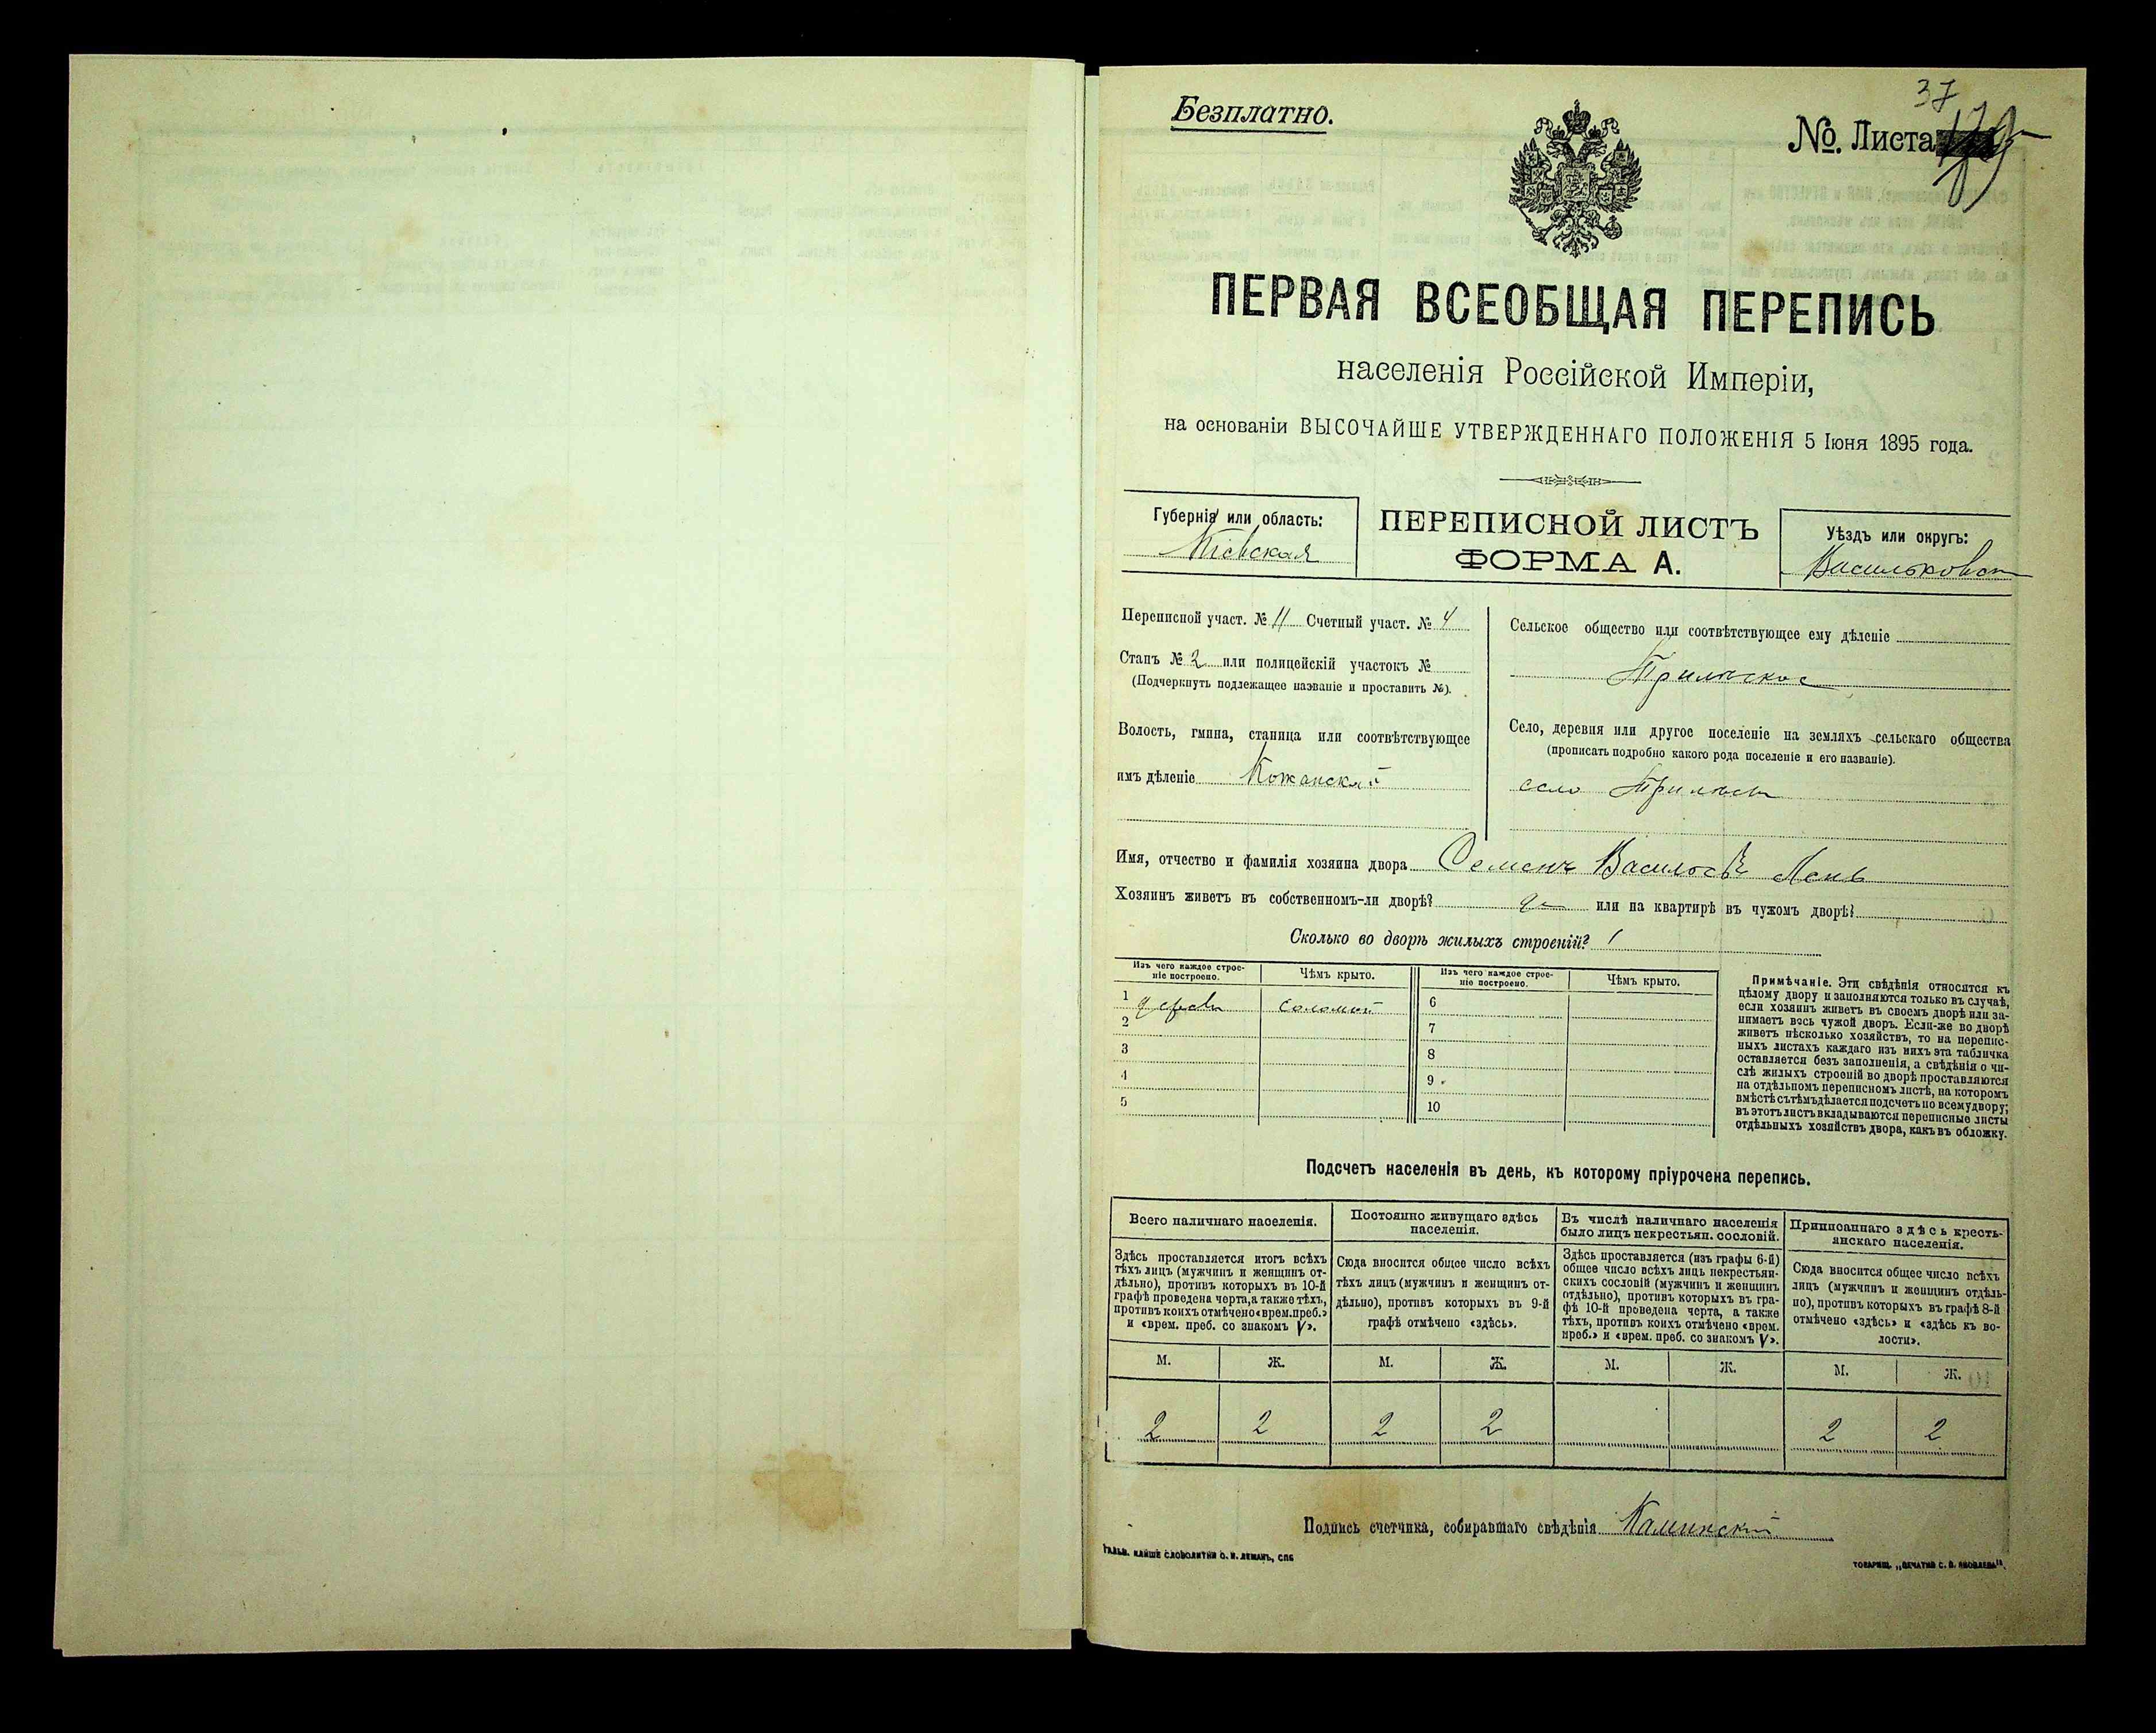 Безплатно.
37
№. Листа
ПЕРВАЯ ВСЕОБЩАЯ ПЕРЕПИСЬ
населенія Россійской Имперіи,
на основаніи ВЫСОЧАЙШЕ УТВЕРЖДЕННАГО ПОЛОЖЕНІЯ 5 Іюня 1895 года.
Губернія или область:
Кіевская
ПЕРЕПИСНОЙ ЛИСТЪ
ФОРМА А.
Уѣздъ или округъ:
Васильковск
Переписной участ. № 11 Счетный участ. № 4
Станъ № 2 или полицейскій участокъ №
(Подчеркнуть подлежащее названіе и проставить №).
Волость, гмина, станица или соотвѣтствующее
имъ дѣленіе Кожанская
Сельское общество или соотвѣтствующее ему дѣленіе
Трилѣское
Село, деревня или другое поселеніе на земляхъ сельскаго общества
(прописать подробно какого рода поселеніе и его названіе).
село Трилѣсы
Имя, отчество и фамилія хозяина двора Семенъ Васильевъ Лень
Хозяинъ живетъ въ собственномъ-ли дворѣ? да или на квартирѣ въ чужомъ дворѣ?
Сколько во дворѣ жилыхъ строеній? 1
Изъ чего каждое строе-
ніе построено.
Чѣмъ крыто.
Изъ чего каждое строе-
ніе построено.
Чѣмъ крыто.
1 дерева соломой 6
2 7
3 8
4 9
5 10
Примѣчаніе. Эти свѣдѣнія относятся къ
цѣлому двору и заполняются только въ случаѣ,
если хозяинъ живетъ въ своемъ дворѣ или за-
нимаетъ весь чужой дворъ. Если-же во дворѣ
живетъ нѣсколько хозяйствъ, то на перепис-
ныхъ листахъ каждаго изъ нихъ эта табличка
оставляется безъ заполненія, а свѣдѣнія о чи-
слѣ жилыхъ строеній во дворѣ проставляются
на отдѣльномъ переписномъ листѣ, на которомъ
вмѣстѣ съ тѣмъ дѣлается подсчетъ по всему двору;
въ этотъ листъ вкладываются переписные листы
отдѣльныхъ хозяйствъ двора, какъ въ обложку.
Подсчетъ населенія въ день, къ которому пріурочена перепись.
Всего наличнаго населенія.
Здѣсь проставляется итогъ всѣхъ
тѣхъ лицъ (мужчинъ и женщинъ от-
дѣльно), противъ которыхъ въ 10-й
графѣ проведена черта, а также тѣхъ,
противъ коихъ отмѣчено «врем. преб.»
и «врем. преб. со знакомъ V».
Постоянно живущаго здѣсь
населенія.
Сюда вносится общее число всѣхъ
тѣхъ лицъ (мужчинъ и женщинъ от-
дѣльно), противъ которыхъ въ 9-й
графѣ отмѣчено «здѣсь».
Въ числѣ наличнаго населенія
было лицъ некрестьян. сословій.
Здѣсь проставляется (изъ графы 6-й)
общее число всѣхъ лицъ некрестьян-
скихъ сословій (мужчинъ и женщинъ
отдѣльно), противъ которыхъ въ гра-
фѣ 10-й проведена черта, а также
тѣхъ, противъ коихъ отмѣчено «врем.
преб.» и «врем. преб. со знакомъ V».
Приписаннаго здѣсь кресть-
янскаго населенія.
Сюда вносится общее число всѣхъ
лицъ (мужчинъ и женщинъ отдѣль-
но), противъ которыхъ въ графѣ 8-й
отмѣчено «здѣсь» и «здѣсь къ во-
лости».
М. Ж. М. Ж. М. Ж. М. Ж.
2 2 2 2 2 2
Подпись счетчика, собиравшаго свѣдѣнія Каминскій
ГАЛЬВ. КЛИШЕ СЛОВОЛИТНИ О. И. ЛЕМАНЪ, СПБ
ТОВАРИЩ. „ПЕЧАТНЯ С. П. ЯКОВЛЕВА".